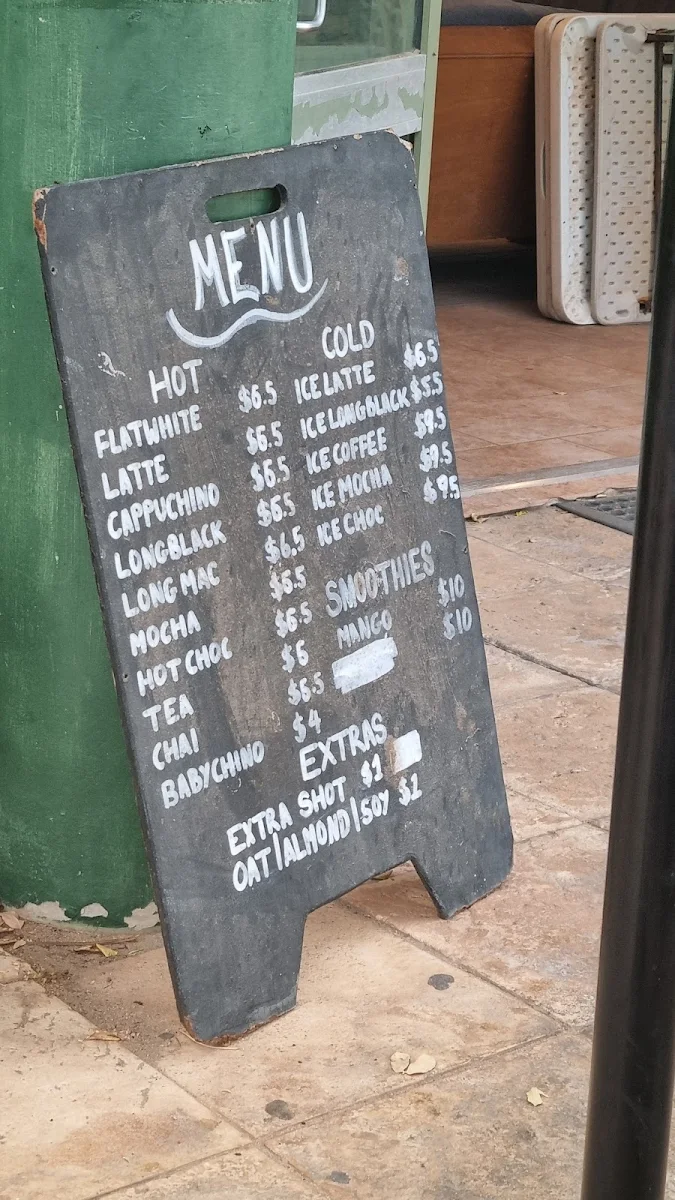 MENU
HOT
FLATWHITE $6.5
LATTE $6.5
CAPPUCHINO $6.5
LONGBLACK $6.5
LONG MAC $6.5
MOCHA $6.5
HOT CHOC $6.5
TEA $6
CHAI $6.5
BABYCHINO $4
COLD
ICE LATTE $6.5
ICE LONGBLACK $5.5
ICE COFFEE $9.5
ICE MOCHA $9.5
ICE CHOC $9.5
SMOOTHIES
MANGO $10
$10
EXTRAS
EXTRA SHOT $1
OAT|ALMOND|SOY $1